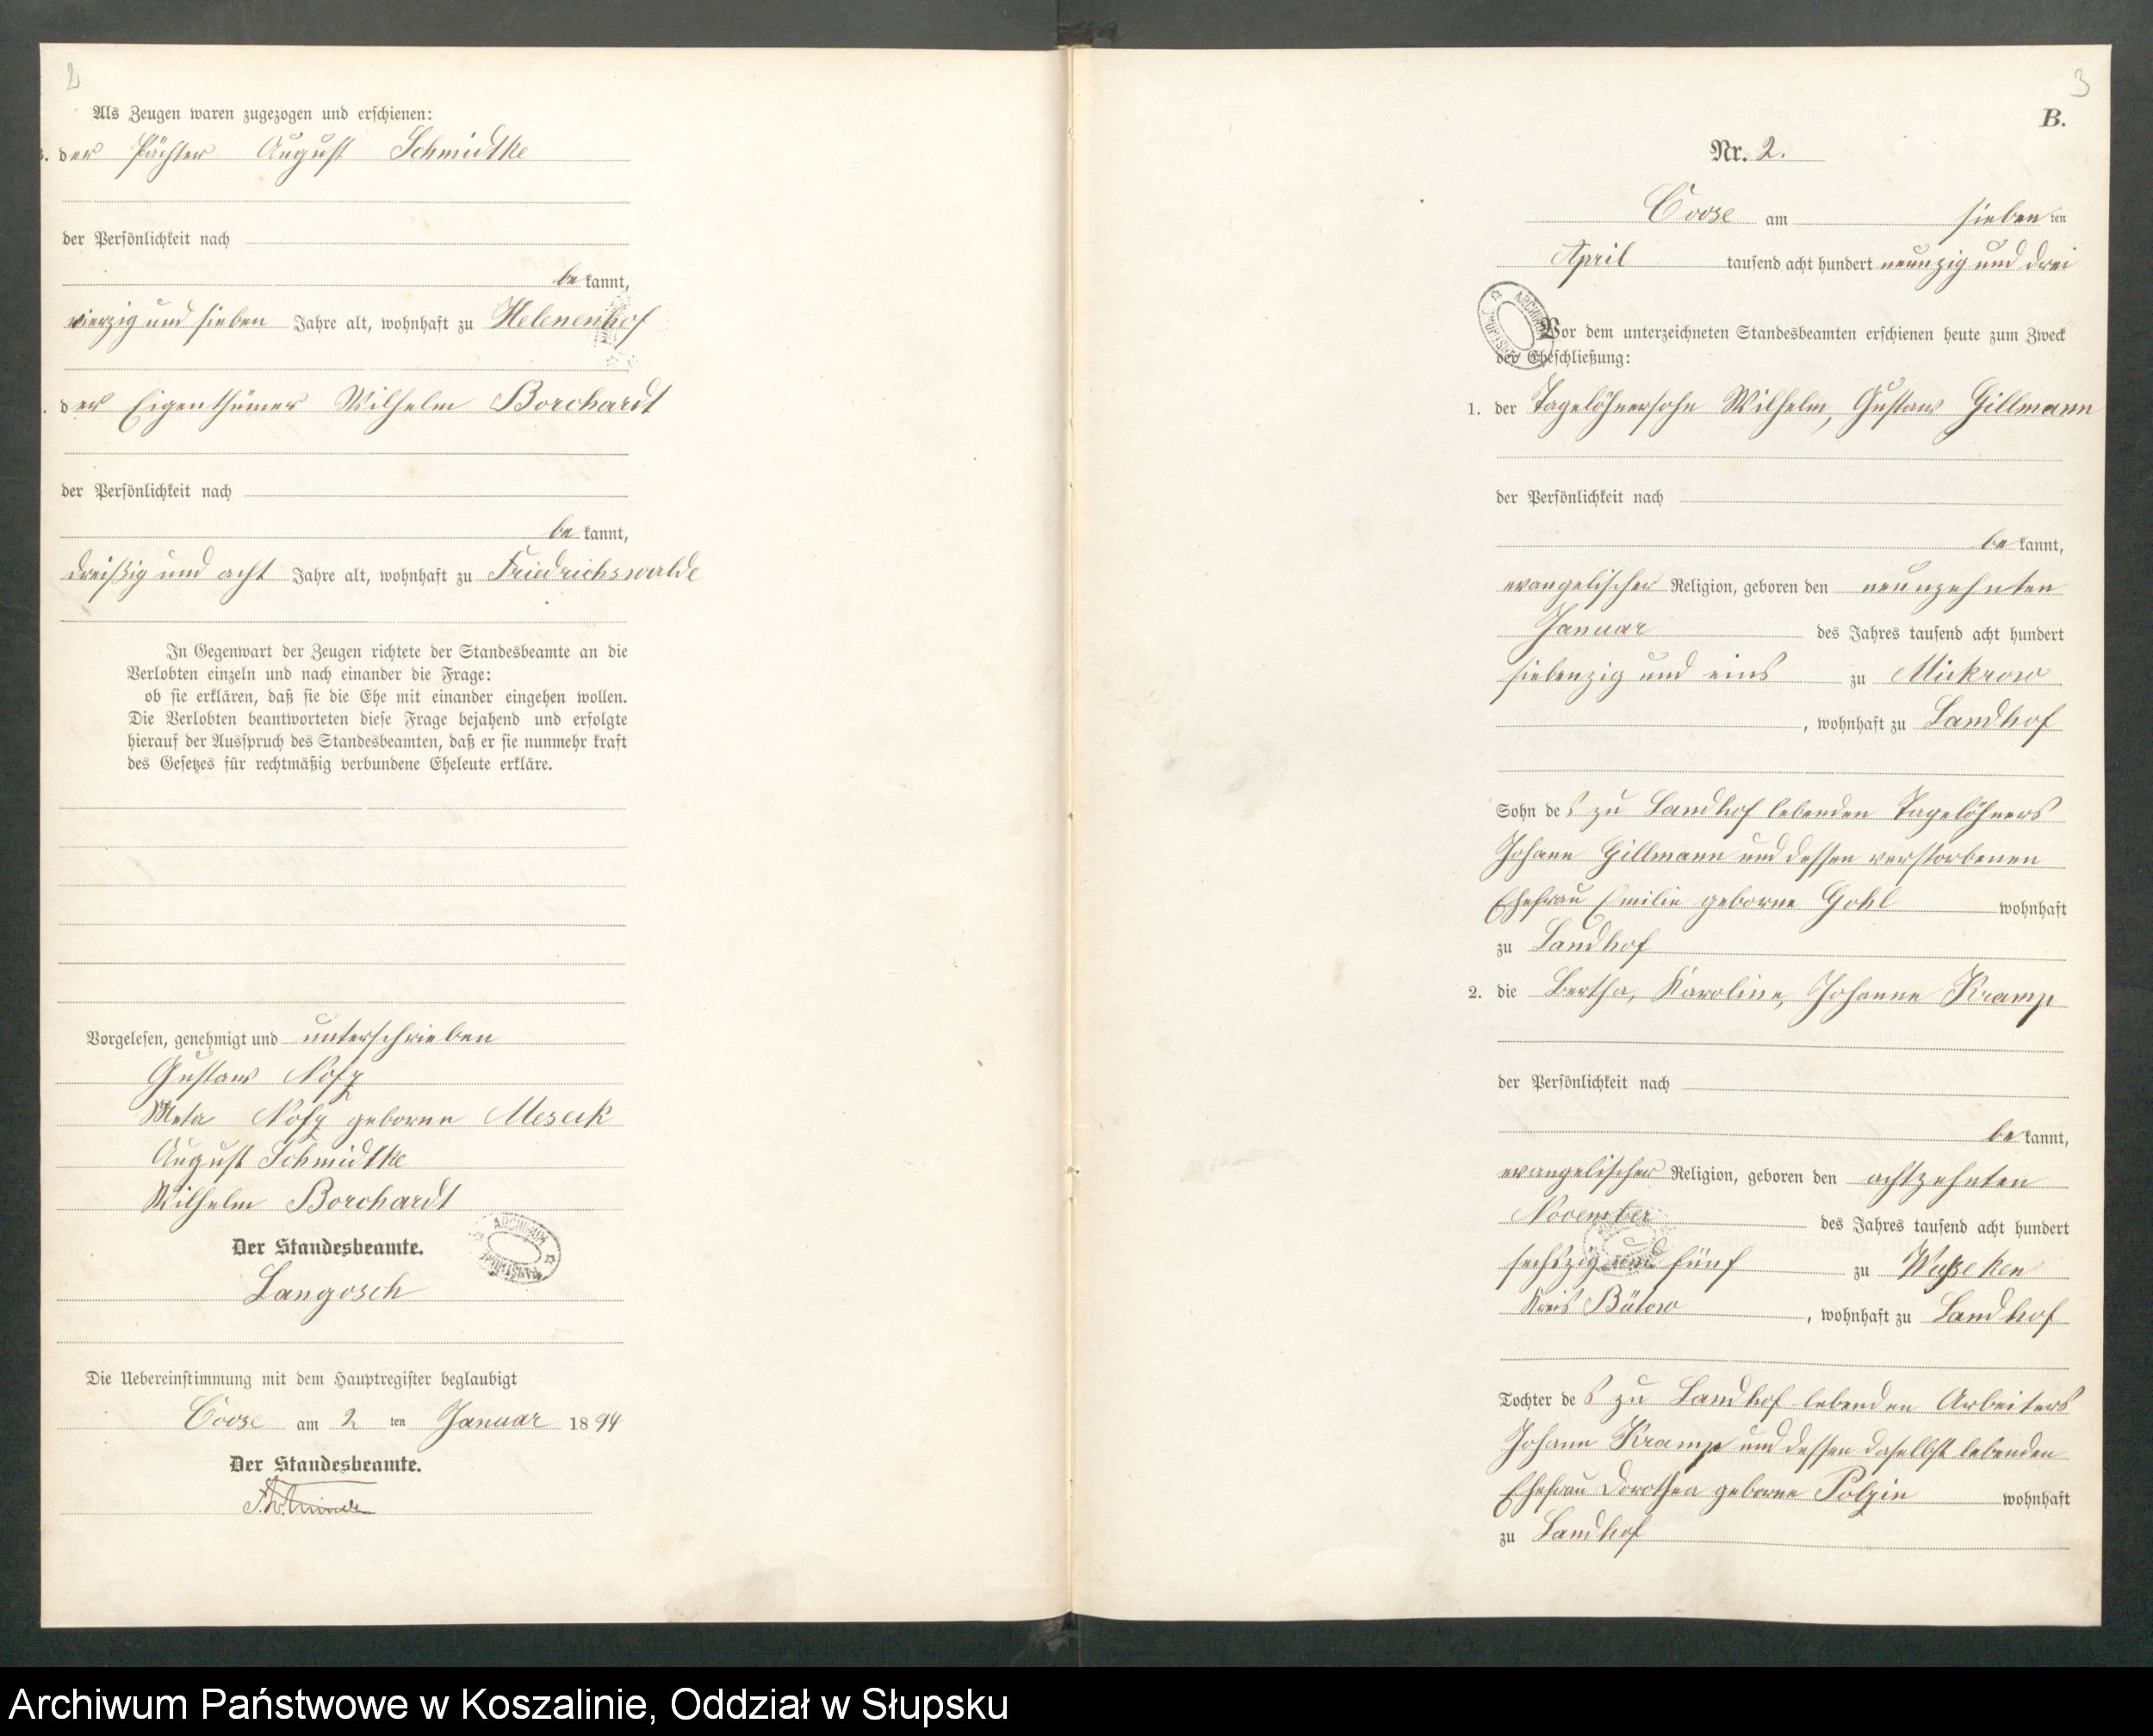 2
Als Zeugen waren zugezogen und erschienen:
3. der Pächter August Schmidtke
der Persönlichkeit nach
be kannt,
vierzig und sieben Jahre alt, wohnhaft zu Helenenhof
der Eigenthümer Wilhelm Borchardt
der Persönlichkeit nach
be kannt,
dreißig und acht Jahre alt, wohnhaft zu Friedrichswalde
In Gegenwart der Zeugen richtete der Standesbeamte an die
Verlobten einzeln und nach einander die Frage:
ob sie erklären, daß sie die Ehe mit einander eingehen wollen.
Die Verlobten beantworteten diese Frage bejahend und erfolgte
hierauf der Ausspruch des Standesbeamten, daß er sie nunmehr kraft
des Gesetzes für rechtmäßig verbundene Eheleute erkläre.
Vorgelesen, genehmigt und unterschrieben
Gustav Nofz
Meta Nofz geborne Meseck
August Schmidtke
Wilhelm Borchardt
Der Standesbeamte.
Langosch
Die Uebereinstimmung mit dem Hauptregister beglaubigt
Coose am 2 ten Januar 1894
Der Standesbeamte.
3
B.
Nr. 2.
Coose am sieben ten
April tausend acht hundert neunzig und drei
Vor dem unterzeichneten Standesbeamten erschienen heute zum Zweck
der Eheschließung:
1. der Tagelöhnersohn Wilhelm, Gustav Gillmann
der Persönlichkeit nach
be kannt,
evangelischer Religion, geboren den neunzehnten
Januar des Jahres tausend acht hundert
siebenzig und eins zu Mickrow
, wohnhaft zu Landhof
Sohn des zu Landhof lebenden Tagelöhners
Johann Gillmann und dessen verstorbenen
Ehefrau Emilie geborne Gohl wohnhaft
zu Landhof
2. die Bertha, Karoline, Johanne Kramp
der Persönlichkeit nach
be kannt,
evangelischer Religion, geboren den achtzehnten
November des Jahres tausend acht hundert
sechszig und fünf zu Wußeken
Kreis Bütow , wohnhaft zu Landhof
Tochter des zu Landhof lebenden Arbeiters
Johann Kramp und dessen daselbst lebenden
Ehefrau Dorothea geborne Polzin wohnhaft
zu Landhof
Archiwum Państwowe w Koszalinie, Oddział w Słupsku